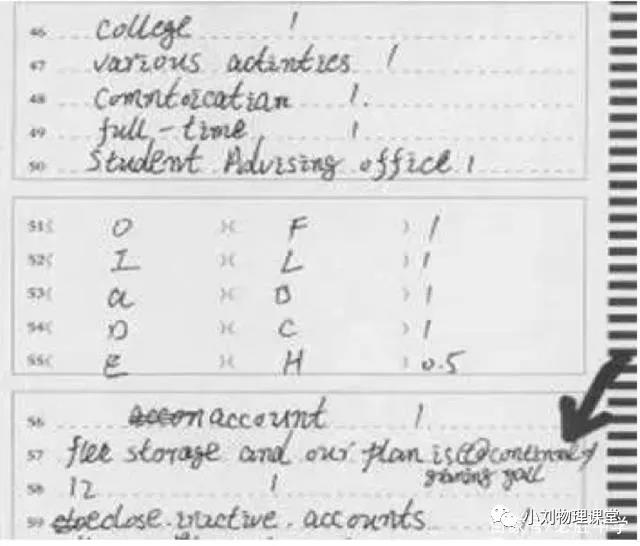 46 college 1
47 various actinties 1
48 comntoication 1.
49 full-time 1
50 Student Advising office 1
51( O )( F ) 1
52( I )( L ) 1
53( a )( B ) 1
54( D )( C ) 1
55( E )( H ) 0.5
56 account 1
57 storage and our plan is
58 12 1
59 close inactive accounts
小刘物理课堂